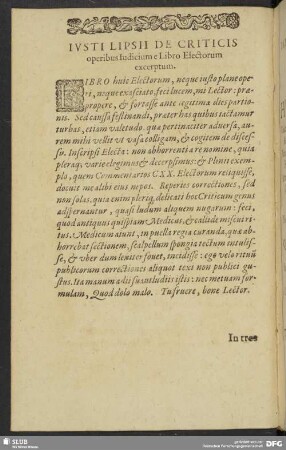 IVSTI LIPSII DE CRITICIS
operibus Iudicium e Libro Electorum
excerptum.
LIBRO huic Electorum, neque iusto plane ope-
ri, neque exascitato, feci lucem, mi Lector: præ-
propere, & fortasse ante legitima dies partio-
nis. Sed caussa festinandi, præter has quibus iactamur
turbas, etiam valetudo. qua pertinaciter aduersa, au-
rem mihi vellit vt vasa colligam, & cogitem de discess-
su. Inscripsi Electa: non abhorrenti a re nomine, quia
pleraq; varie elegimus & decerpsimus: & Plinii exem-
plo, quem Commentarios CXX. Electorum reliquisse,
docuit me alibi eius nepos. Reperies correctiones, sed
non solas. quia enim plerıq; delicati hoc Criticum genus
aspernantur, quasi ludum aliquem nugarum: feci
quod antiquus quispiam Medicus, & calide miscui ri-
tus. Medicum aiunt, in puella regia curanda, quæ ab-
horrebat sectionem, scalpellum spongia tectum intulis-
se, & vber dum leniter fouet, incidisse: ego velo rituũ
publicorum correctiones aliquot texi non publici gu-
stus. Ita manum adii suauiludiis istis: nec metuam for-
mulam, Quod dolo malo. Tu fruere, bone Lector.
In tres
SLUB
Wir führen Wissen.